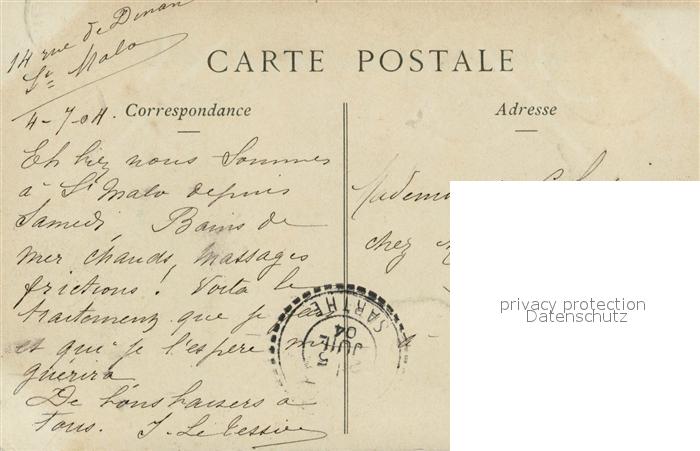 14 rue de Dinan
St Malo
CARTE POSTALE
4-7-04. Correspondance
Adresse
nous sommes
à St Malo depuis
Samedi. Bains de
mer chauds, massages
frictions! Voilà le
traitement que je
et que je l'espère me
guérira
De bons baisers à
tous. J. Le Tessier
chez
SARTHE
5
JUIL
04
privacy protection
Datenschutz